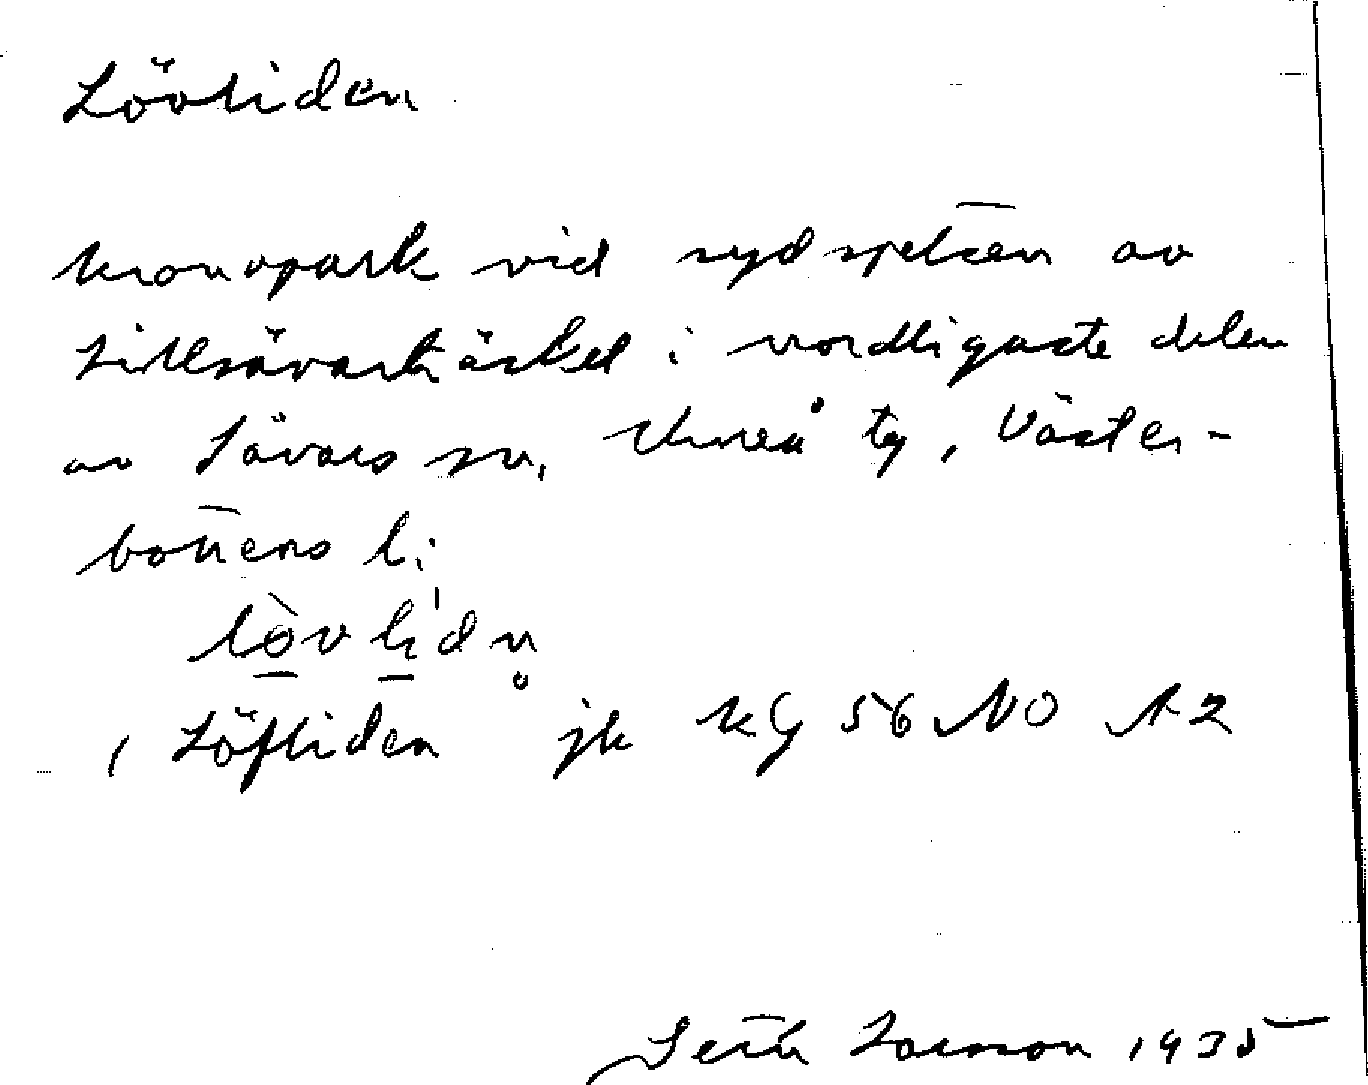 Lövliden
kronopark vid sydspetsen av
Lillsävarträsket i nordligaste delen
av Sävars sn, Umeå tg, Väster-
bottens l:
löv lidn̥
, Löfliden jk kG 56 NO A2
Seth Larsson 1935